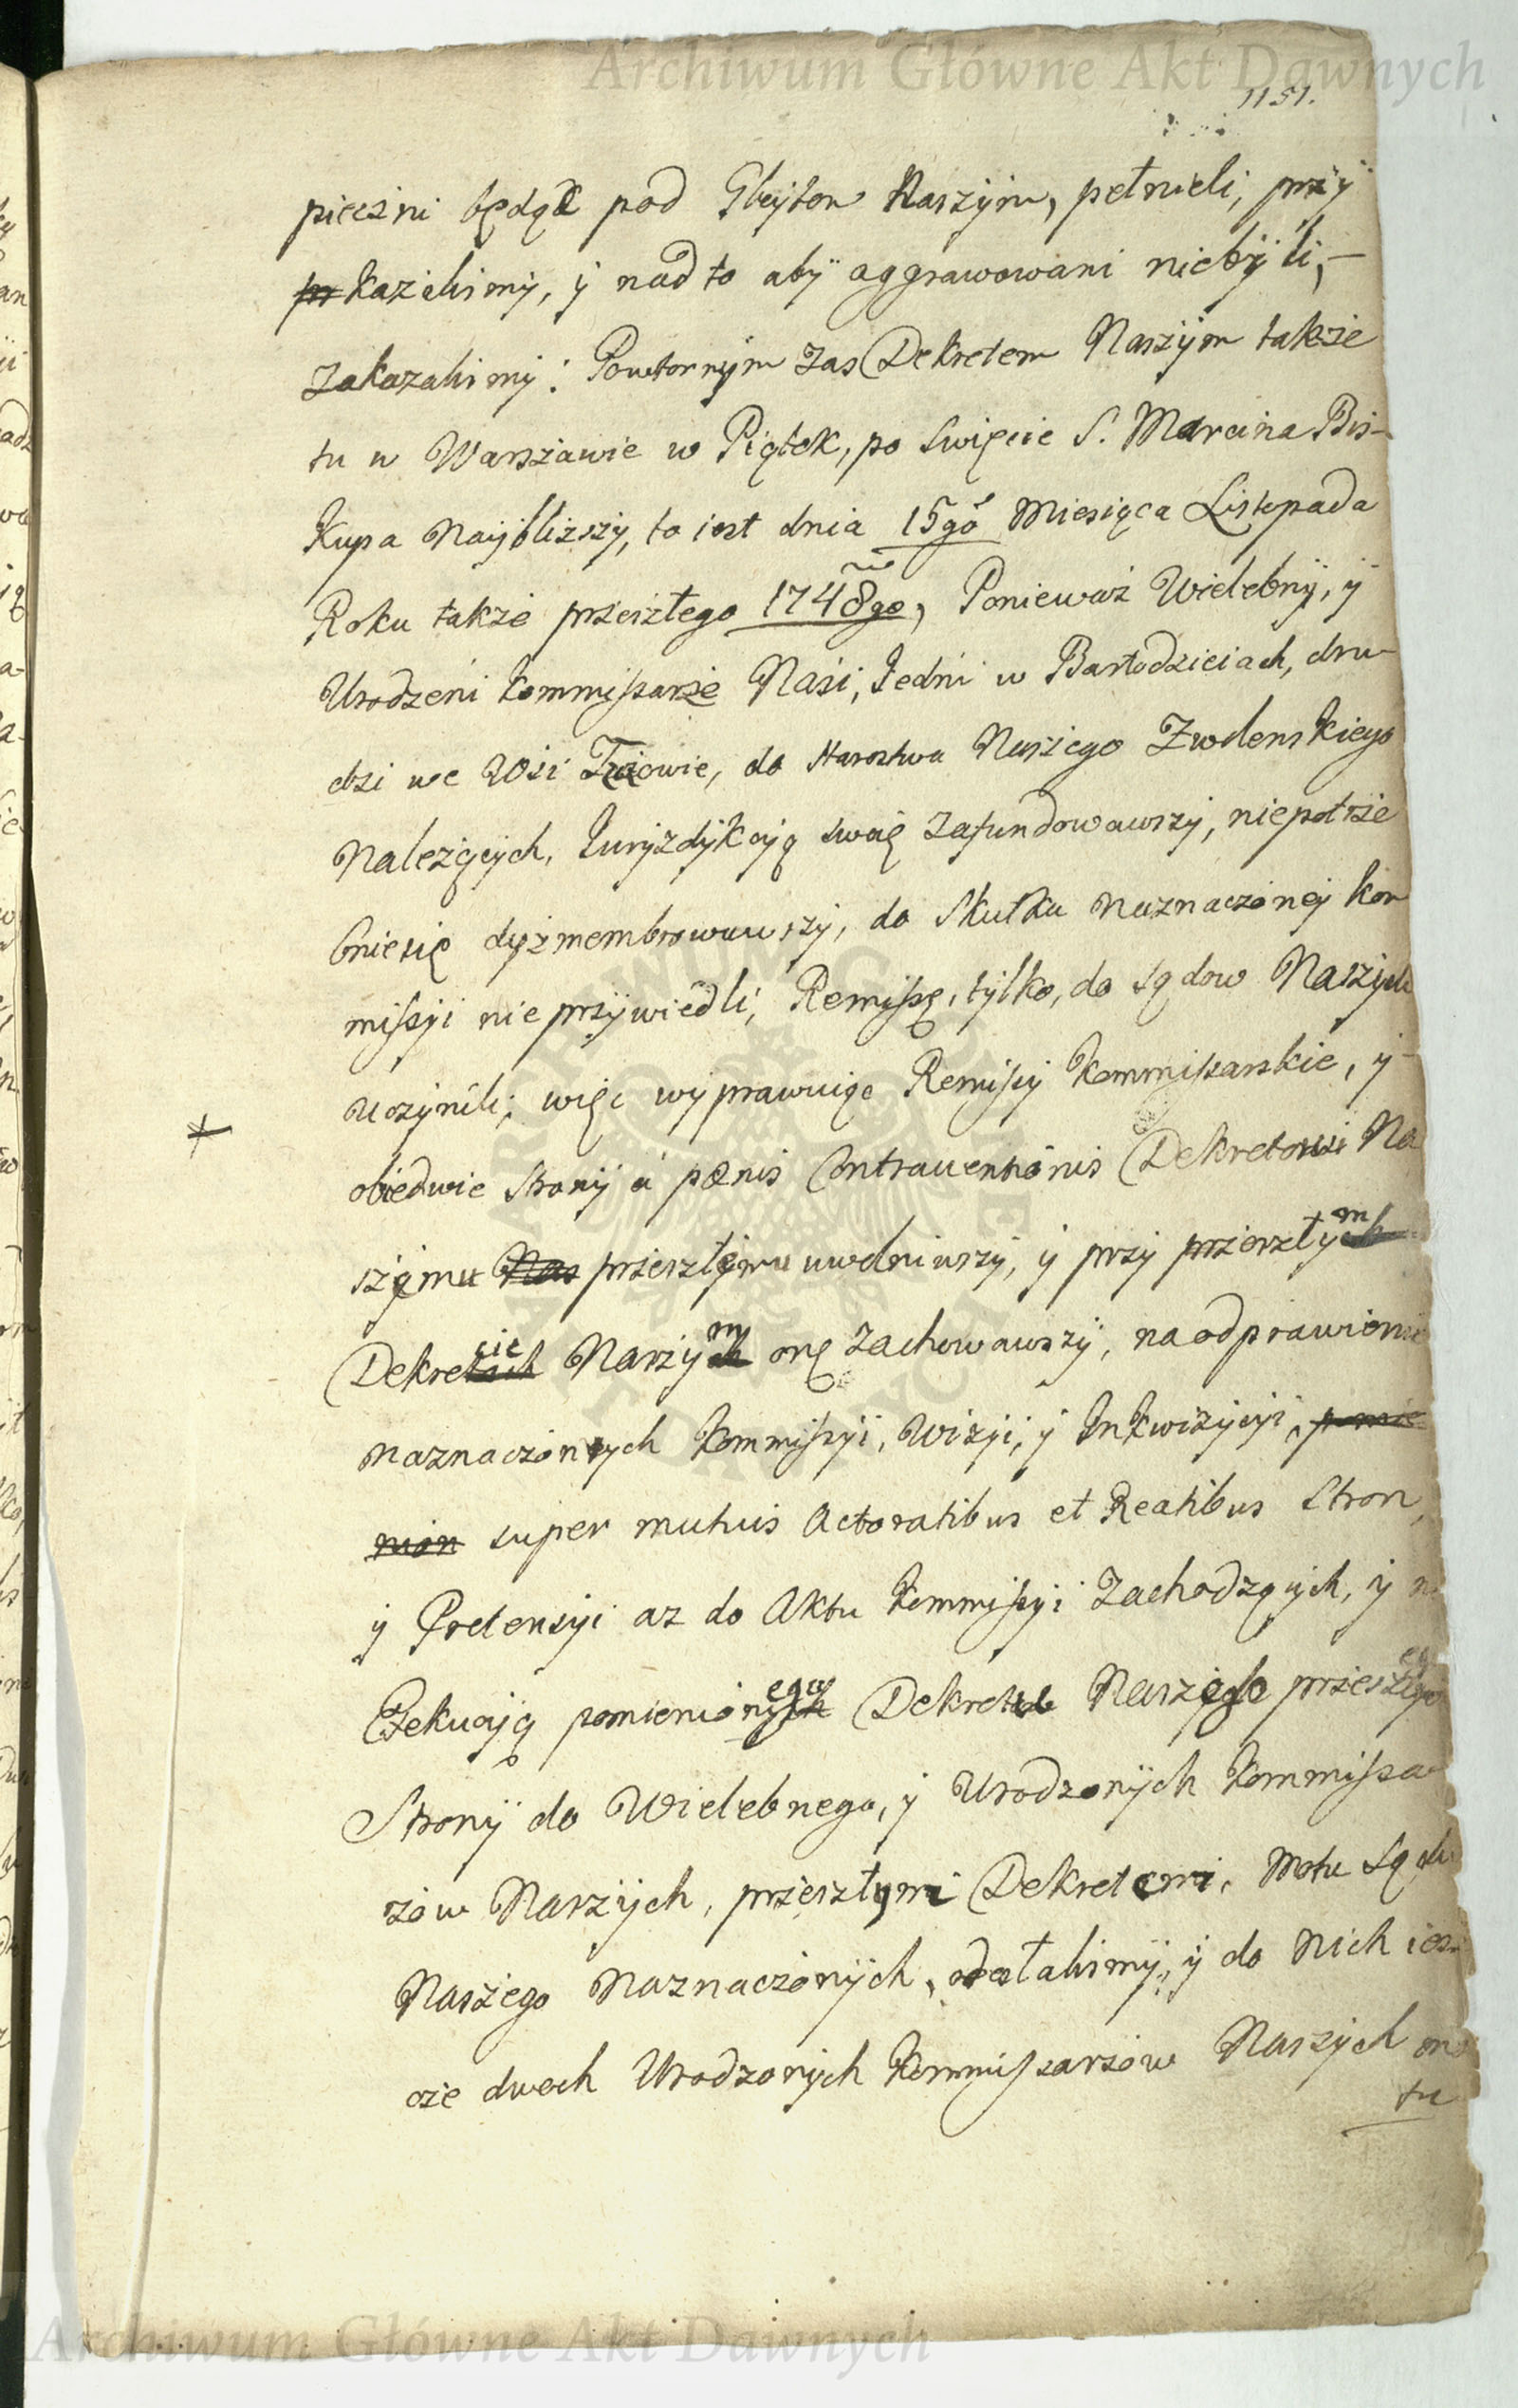 Archiwum Główne Akt Dawnych
1151.
pieczni będąc pod Gleytem Naszÿm, pełnieli, przÿ
kazalismÿ, ÿ nad to abÿ aggrawowani niebÿli,
zakazalismÿ: Powtornÿm zas Dekretem Naszÿm takze
tu w Warszawie w Piątek, po Swięcie S. Marcina Bis-
kupa Nayblizszÿ, to iest dnia 15go Miesiąca Listopada
Roku takze przeszłego 1748go, Poniewaz Wielebnÿ, ÿ
Urodzeni Kommissarze Nasi, Jedni w Bartodzieiach, dru-
dzi we Wsi Tczowie, do Starostwa Naszego Zwolenskiego
Nalezących, Juryzdykcyą swoię zafundowawszÿ, niepotrze
bniesię dyzmembrowawszÿ, do Skutku naznaczonej Kom
missyi nie przÿwiedli, Remissę, tÿlko, do Sądow Naszych
uczynili; więc wyprawuiąc Remissÿ Kommissarskie, ÿ
obiedwie Stronÿ a pœnis Contraventionis Dekretowi Na
szęmu Nas przeszłęmu uwolniwszÿ, ÿ przÿ przeszłym
Dekrecie Naszÿm onę zachowawszÿ, na odprawienie
naznaczonych Kommissyi, Wizyi, ÿ Inkwizycyi,
super mutuis Actoratibus et Reatibus Stron,
ÿ Pretensyi az do Aktu Kommissyi Zachodzących, ÿ na
Exekucyą pomienionego Dekretu Naszego przeszłego
Stronÿ do Wielebnego, ÿ Urodzonÿch Kommissa
zow Naszÿch, przeszłymi Dekretemi, Motu Sądu
Naszego Naznaczonÿch, odesłalismÿ, ÿ do Nich ies-
cze dwoch Urodzonÿch Kommissarzow Naszÿch mo
tu
Archiwum Główne Akt Dawnych